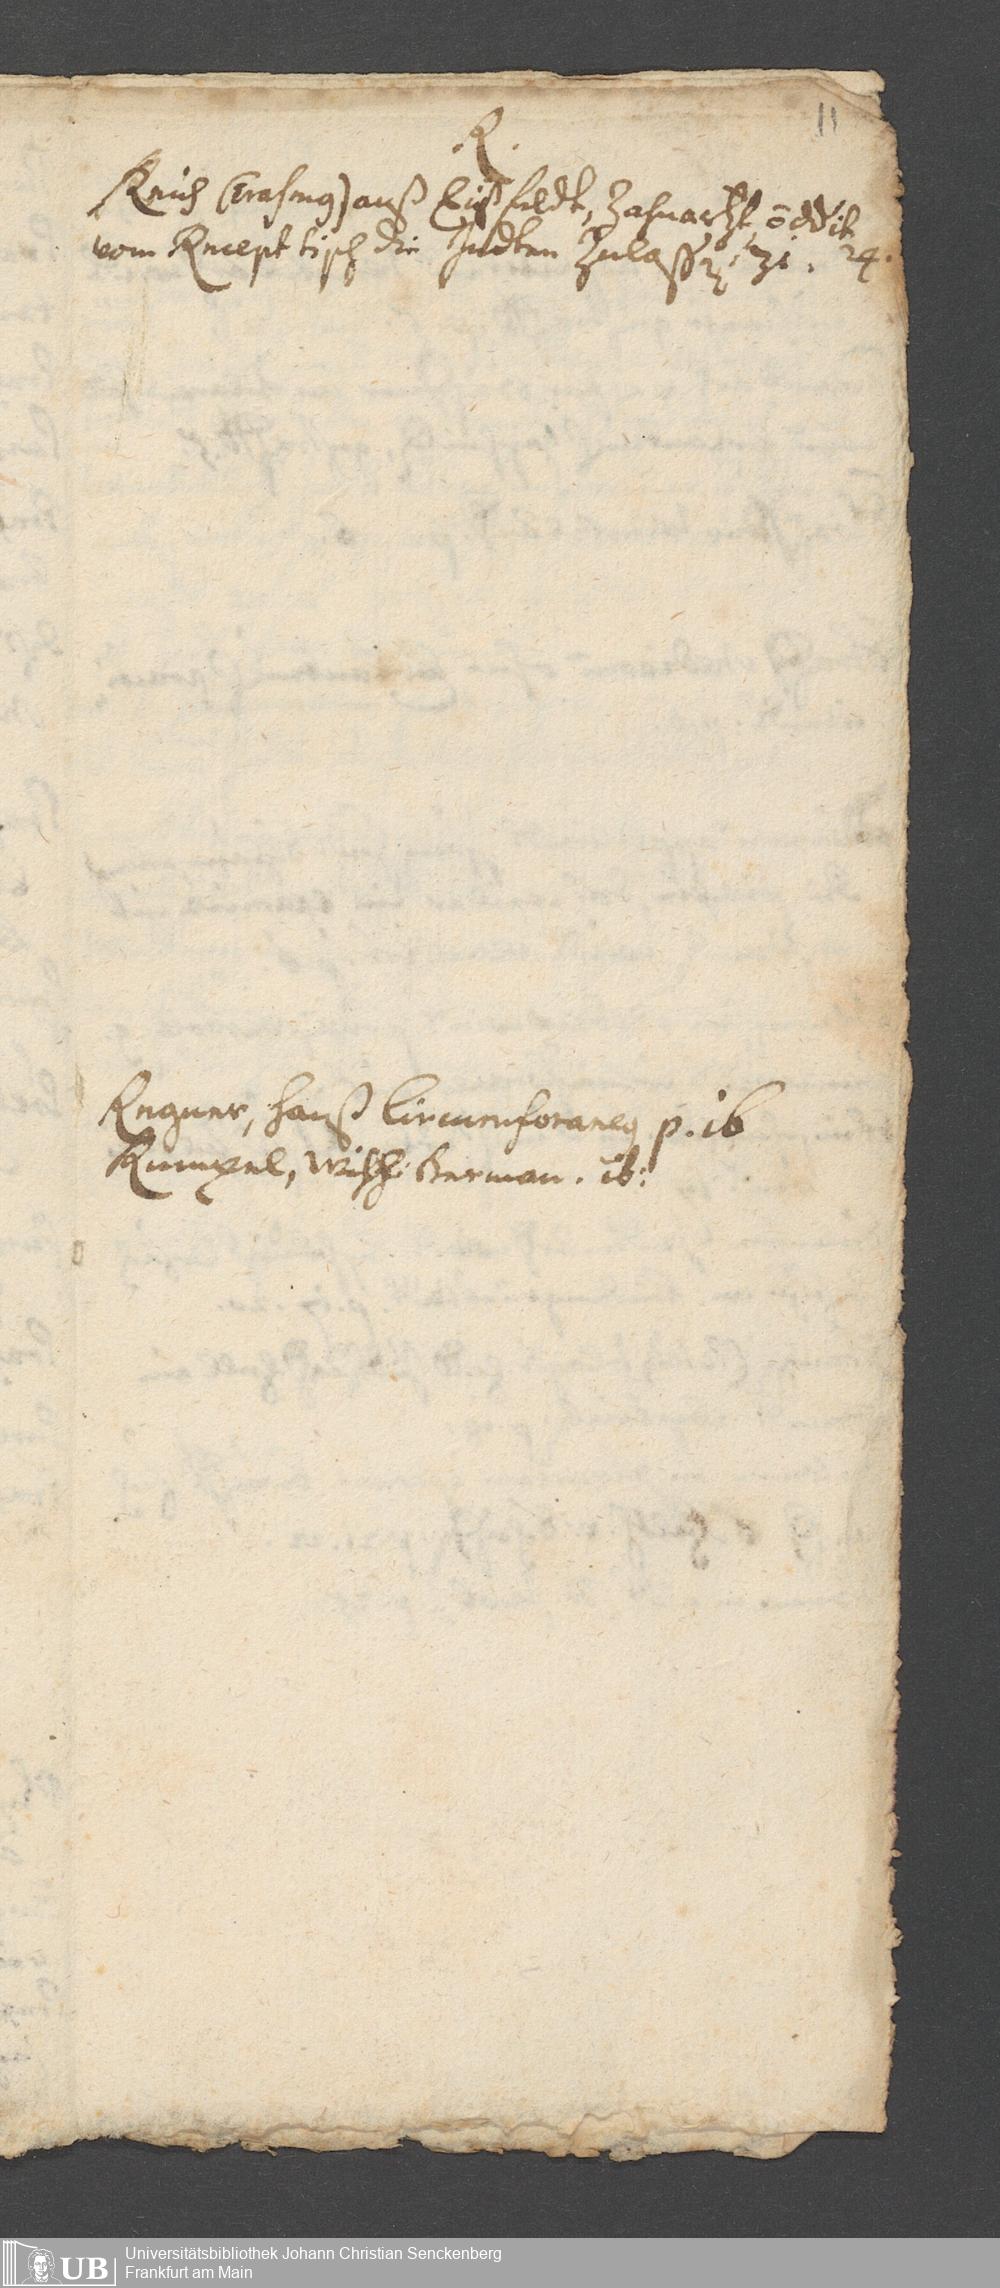 11
.R.
Reich (Erasmus) auß Eißfeldt, Zahnartzt,
vom Recept tisch die Juden Zulaß 31. 24.
Regner, Hanß Circumforaneus p. 16
Rumpel, Wilh: Herman. ib:
UB
Universitätsbibliothek Johann Christian Senckenberg
Frankfurt am Main